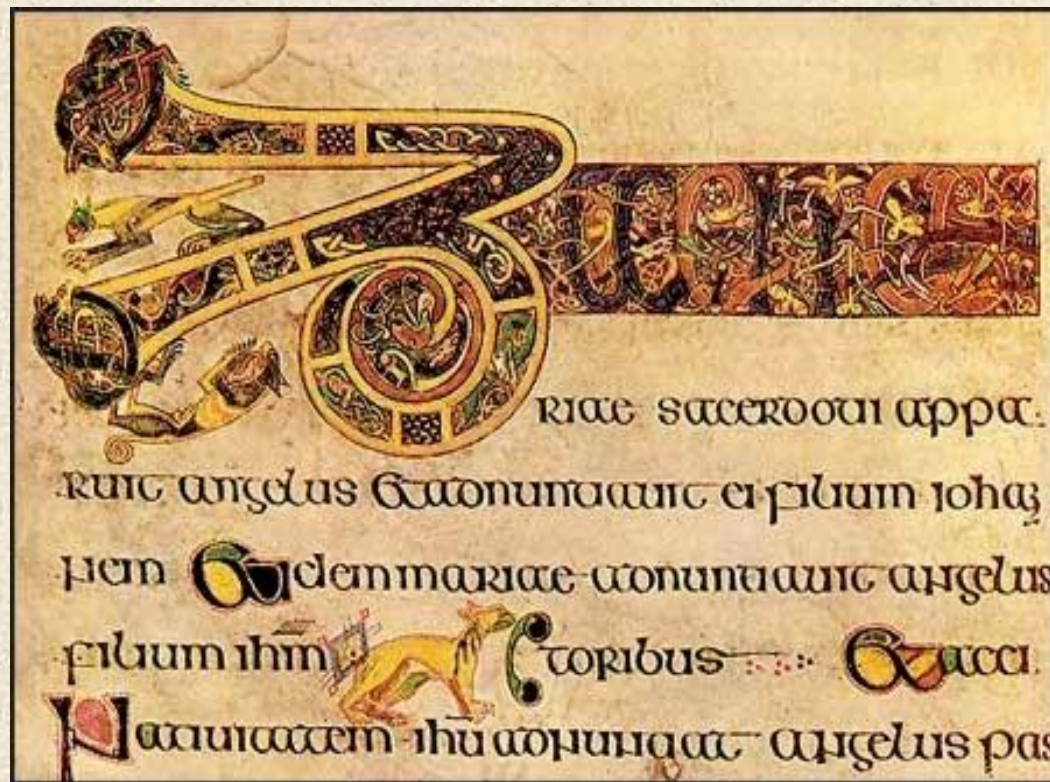 Zacha
riae sacerdoti appa
ruit angelus & adnuntiauit ei filium iohan
nem & eidem mariae adnuntiauit angelus
filium ihm toribus & acci
Natiuitatem ihu adnuntiat angelus pas